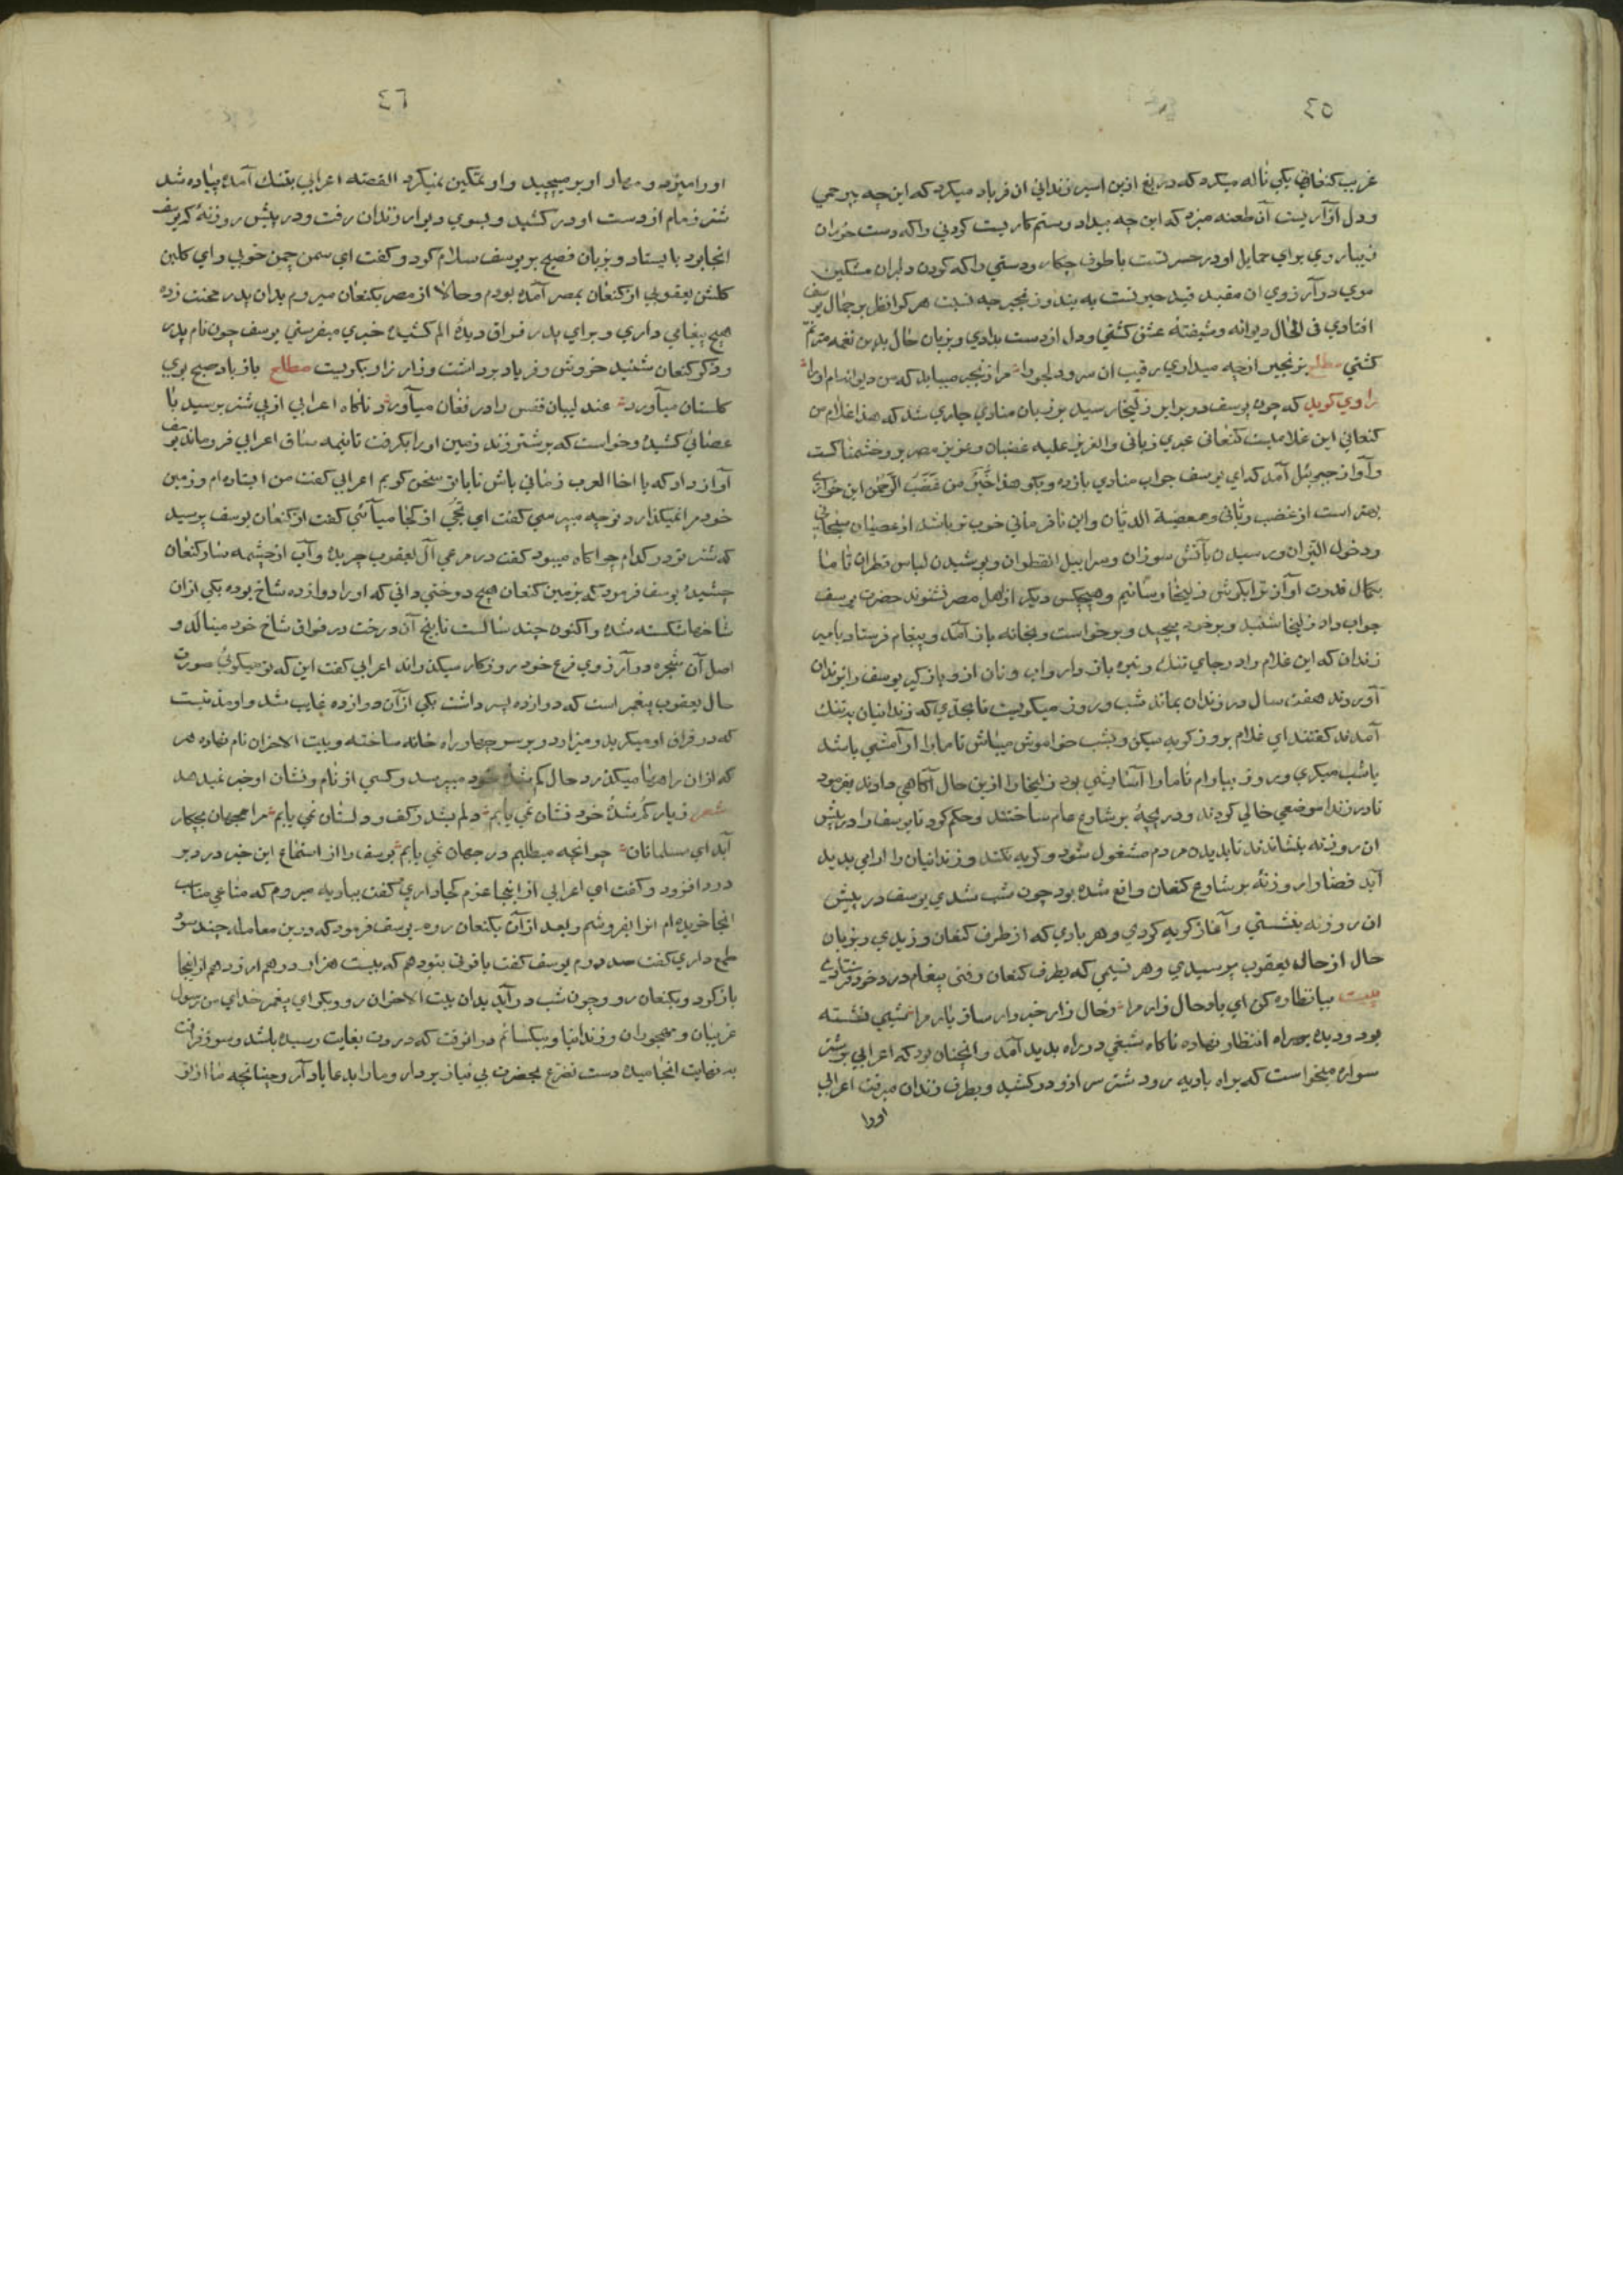 ٤٥
غریب کنعانی یکی ناله میکرد که دریغ ازین اسیر زندانی ان فریاد میکرد که این چه بیرحمی
ودل آزاریست آن طعنه میزد که این چه بیداد وستم کاریست کردنی واکه دست خوران
زیباروی برای حمایل او در حسرتست باطوف چکار ودستی واکه کردن دلبران مشکین
موی در آرزوی ان مقید قید حیرتست به بند وزنجیر چه نسبت هرکرا نظر بر جمال یوسف
افتادی فی الحال دیوانه وشیفتهٔ عشق کشتی ودل از دست بدادی وبزبان حال بدین نغمه مترنم
کشتی مطلع بزنجیر ازچه میداری رقیب ان سرو دلجو را مرا زنجیر میباید که من دیوانه‌ام او را
راوی کوید که چون یوسف در برابر زلیخا رسید بر زبان منادی جاری شد که هذا غلام من
کنعانی این غلامیست کنعانی عبری زبانی والعزیز علیه غضبان وعزیز مصر برو خشمناکست
وآواز جبرئیل آمد که ای یوسف جواب منادی بازده وبکو هذا خیر من غضب الرحمن این خواری
بهتر است از غضب ربانی ومعصیة الدیان واین نافرمانی خوب تر باشد از عصیان سبحانی
ودخول النیران ورسیدن بآتش سوزان وسرابیل القطران وپوشیدن لباس قطران تا ما
بکمال قدرت آواز ترا بکوش زلیخا رسانیم وهیچکس دیکر از اهل مصر نشنوند حضرت یوسف
جواب داد زلیخا شنید وبرخود پیچید وبرخواست وبخانه باز آمد وپیغام فرستاد بامیر
زندان که این غلام را در جای تنک وتیره باز دار واب ونان ازو بازکیر یوسف را بزندان
آوردند هفت سال در زندان بماند شب وروز میکریست تا بحدی که زندانیان بدتنک
آمدند کفتند ای غلام بروز کریه میکن وبشب خواموش میباش تا ما را آرامشی باشد
یا شب میکری وروز بیارام تا ما را آسایشی بود زلیخا را ازین حال آکاهی دادند بفرمود
تا در زندان موضعی خالی کردند ودریچهٔ بر شارع عام ساختند وحکم کرد تا یوسف را در پیش
ان روزنه بنشاندند تا بدیدن مردم مشغول شود وکریه نکند وزندانیان را ارامی پدید
آید قضا را روزنهٔ بر شارع کنعان واقع شده بود چون شب شدی یوسف در پیش
ان روزنه بنشستی وآغاز کریه کردی وهر بادی که از طرف کنعان وزیدی وبزبان
حال از حال یعقوب پرسیدی وهر نسیمی که بطرف کنعان رفتی پیغام درد خود فرستادی
بیت بیا نظاره کن ای باد حال زار مرا وحال زار خبردار ساز یار مرا شبی نشسته
بود ودیده بر راه انتظار نهاده ناکاه شبحی در راه پدید آمد وانچنان بود که اعرابی بر شتر
سواره میخواست که براه بادیه رود شتر سر ازو در کشید وبطرف زندان میرفت اعرابی
اورا
٤٦
اورا میزد ومهار او بر میپیچید واو تمکین نمیکرد القصه اعرابی بتنک آمده پیاده شد
شتر زمام از دست او در کشید وبسوی دیوار زندان رفت ودر پیش روزنهٔ که یوسف
انجا بود بایستاد وبزبان فصیح بر یوسف سلام کرد وکفت ای سمن چمن خوبی وای کلبن
کلشن یعقوبی از کنعان بمصر آمده بودم وحالا از مصر بکنعان میروم بدان پدر محنت زده
هیچ پیغامی داری وبرای پدر فراق دیدهٔ الم کشیده خبری میفرستی یوسف چون نام پدر
وذکر کنعان شنید خروش وفریاد برداشت وزار زار بکریست مطلع باز باد صبح بوی
کلستان میآورد عندلیبان قفس را در فغان میآورد ناکاه اعرابی از پی شتر برسید با
عصائی کشیده وخواست که بر شتر زند زمین او را بکرفت تا نیمه ساق اعرابی فروماند یوسف
آواز داد که یا اخا العرب زمانی باش تا باتو سخن کویم اعرابی کفت من ایستاده‌ام وزمین
خود مرا نمیکذارد توچه میپرسی کفت ای نجی از کجا میآئی کفت از کنعان یوسف پرسید
که شتر تو در کدام چراکاه میبود کفت در مرعی آل یعقوب چریده وآب از چشمه سار کنعان
چشیده یوسف فرمود که بزمین کنعان هیچ درختی دانی که او را دوازده شاخ بوده یکی ازان
شاخها شکسته شده واکنون چند سالست تا بیخ آن درخت در فراق شاخ خود مینالد و
اصل آن شجره در آرزوی فرع خود روزکار میکذراند اعرابی کفت این که تو میکوئی صورت
حال یعقوب پیغمبر است که دوازده پسر داشت یکی از آن دوازده غایب شد واو مدتیست
که در فراق او میکرید ومیزارد وبر سر چهار راه خانه ساخته وبیت الاحزان نام نهاده هر
که ازان راهها میکذرد حال کم شدهٔ خود میپرسد وکسی از نام ونشان او خبر نمیدهد
شعر زیار کم شدهٔ خود نشان نمی یابم دلم بشد ز کف ودلستان نمی یابم مرا جهان بچکار
آید ای مسلمانان چو انچه میطلبم در جهان نمی یابم یوسف را از استماع این خبر درد بر
درد افزود وکفت ای اعرابی از اینجا عزم کجا داری کفت ببادیه میروم که متاعی مناسب
انجا خریده‌ام انرا بفروشم وبعد از آن بکنعان روم یوسف فرمود که درین معامله چند سود
طمع داری کفت صد درم یوسف کفت یاقوتی بتو دهم که بیست هزار درهم ارزد هم از اینجا
بازکرد وبکنعان رو وچون شب درآید بدان بیت الاحزان رو وبکو ای پیغمبر خدای من رسول
غریبان ومهجوران وزندانیان وبیکسانم در انوقت که درون بغایت رسیده باشد وسوز فراقت
بنهایت انجامیده دست تضرع بحضرت بی نیاز بردار وما را بدعا یاد آر وچنانچه ما از تو